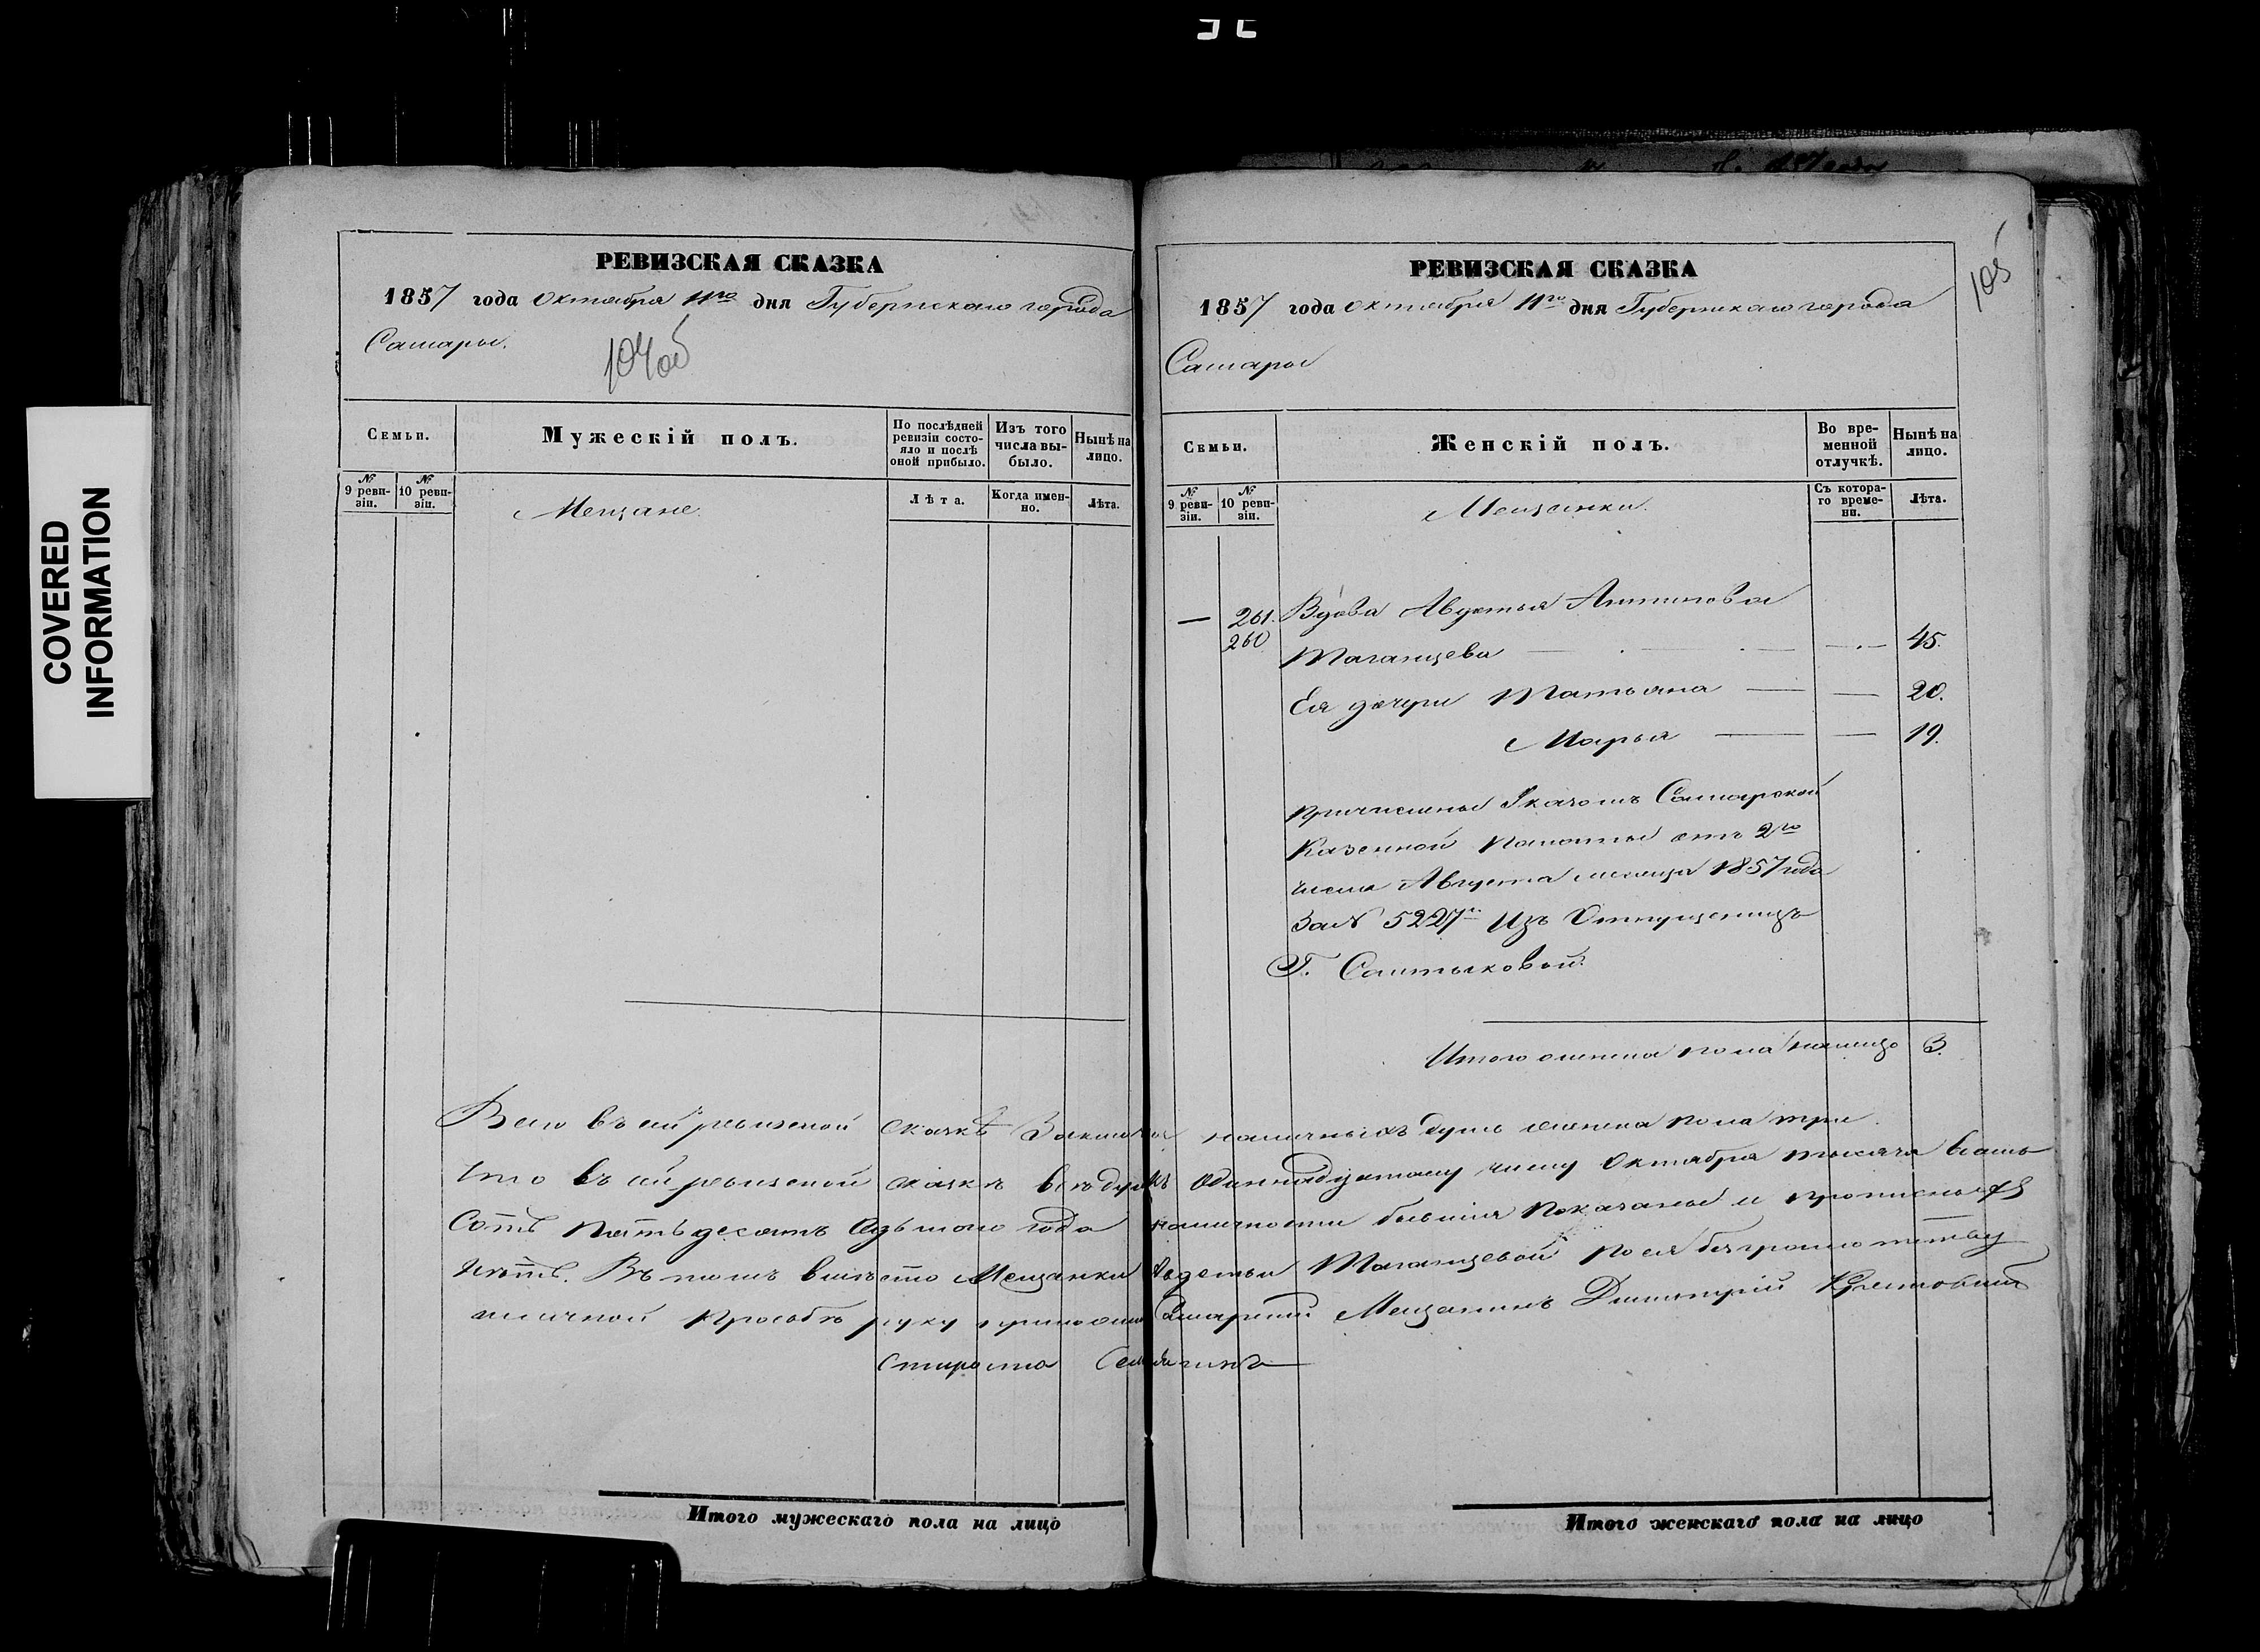 COVERED
INFORMATION
РЕВИЗСКАЯ СКАЗКА
1857 года Октября 11го дня Губернскаго города
Самары.
104об
Семьи.
Мужескій полъ.
По послѣдней ревизіи состояло и послѣ оной прибыло.
Изъ того числа выбыло.
Нынѣ на лицо.
№ 9 ревизіи.
№ 10 ревизіи.
Мещане.
Лѣта.
Когда именно.
Лѣта.
РЕВИЗСКАЯ СКАЗКА
105
1857 года Октября 11го дня Губернскаго города
Самары
Семьи.
Женскій полъ.
Во временной отлучкѣ.
Нынѣ на лицо.
№ 9 ревизіи.
№ 10 ревизіи.
Мещанки.
Съ котораго времени.
Лѣта.
— 261. Вдова Авдотья Антипова
260 Таганцева — — 45.
Ея дочери Татьяна — — 20.
Марья — — 19.
причислены Указомъ Самарской
Казенной Палаты отъ 2го
числа Августа месяца 1857 года
За № 5227м Изъ Отпущенницъ
Г. Салтыковой.
Итого женска пола налицо 3.
Всего въ сей ревизской сказкѣ наличныхъ душъ женска пола три.
Что въ сей ревизской сказкѣ всѣ души къ Одиннадцатому числу Октября тысяча восемь
Сотъ пятьдесятъ седьмого года наличности бывшія показаны и прописныхъ
нѣтъ. Въ томъ вмѣсто Мещанки Авдотьи Таганцевой по ея безграмотству
и личной прозьбѣ руку приложилъ Самарский Мещанинъ Димитрій
Староста
Итого мужескаго пола на лицо
Итого женскаго пола на лицо